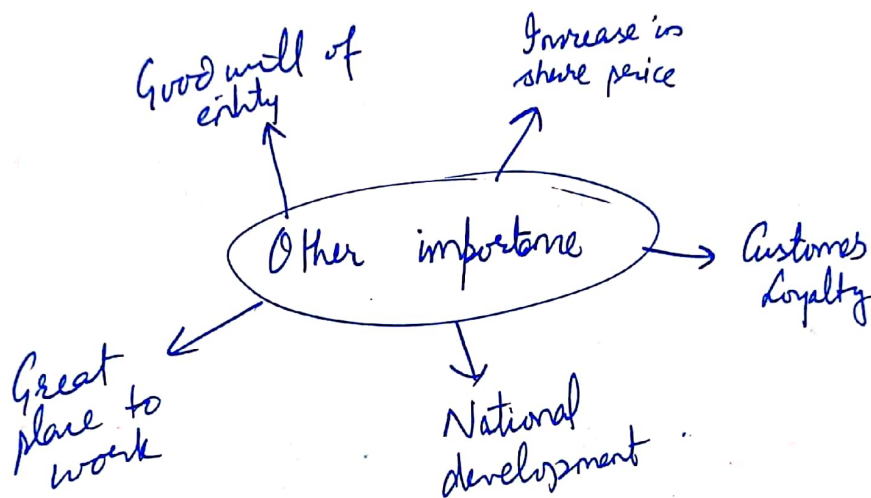 Goodwill of
entity
Increase in
share price
Other importance
Customer
Loyalty
Great
place to
work
National
development